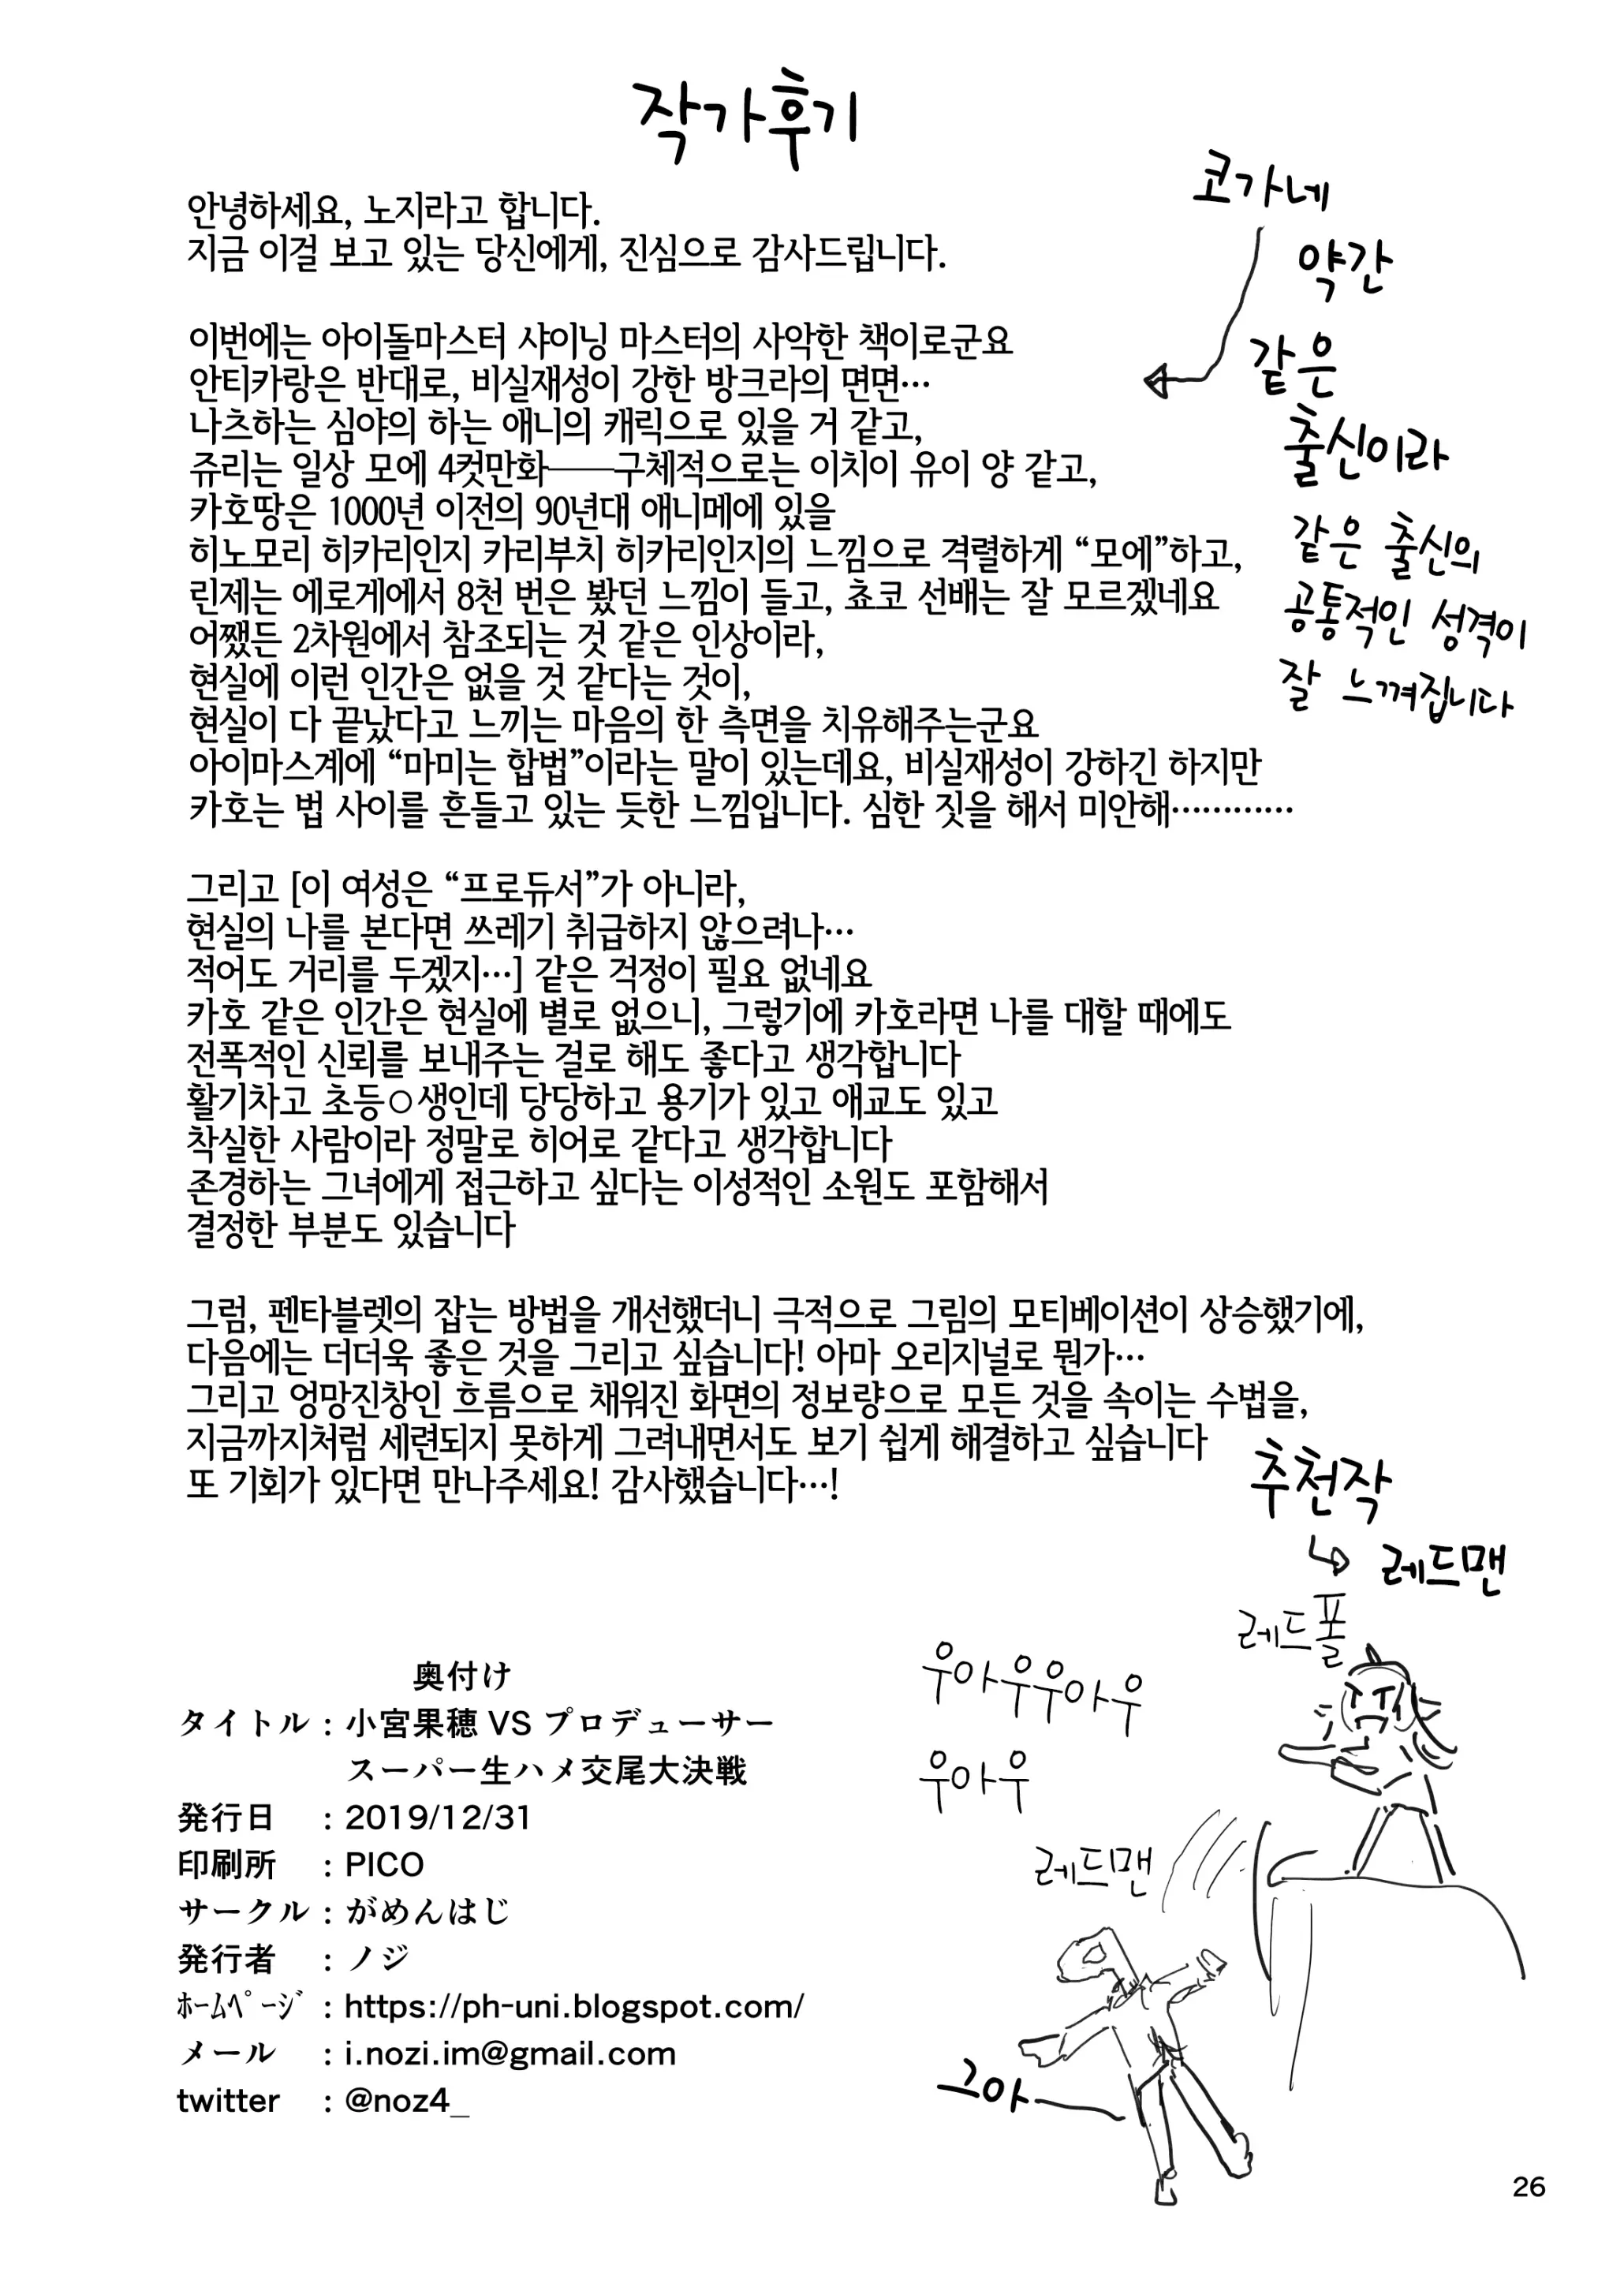 작가후기
안녕하세요, 노지라고 합니다.
지금 이걸 보고 있는 당신에게, 진심으로 감사드립니다.
이번에는 아이돌마스터 샤이닝 마스터의 사악한 책이로군요
안티카랑은 반대로, 비실재성이 강한 방크라의 면면…
나츠하는 심야의 하는 애니의 캐릭으로 있을 거 같고,
쥬리는 일상 모에 4컷만화──구체적으로는 이치이 유이 양 같고,
카호땅은 1000년 이전의 90년대 애니메에 있을
히노모리 히카리인지 카리부치 히카리인지의 느낌으로 격렬하게 “모에”하고,
린제는 에로게에서 8천 번은 봤던 느낌이 들고, 쵸코 선배는 잘 모르겠네요
어쨌든 2차원에서 참조되는 것 같은 인상이라,
현실에 이런 인간은 없을 것 같다는 것이,
현실이 다 끝났다고 느끼는 마음의 한 측면을 치유해주는군요
아이마스계에 “마미는 합법”이라는 말이 있는데요, 비실재성이 강하긴 하지만
카호는 법 사이를 흔들고 있는 듯한 느낌입니다. 심한 짓을 해서 미안해…………
코가네
약간
같은
출신이라
같은 출신의
공통적인 성격이
잘 느껴집니다
그리고 [이 여성은 “프로듀서”가 아니라,
현실의 나를 본다면 쓰레기 취급하지 않으려나…
적어도 거리를 두겠지…] 같은 걱정이 필요 없네요
카호 같은 인간은 현실에 별로 없으니, 그렇기에 카호라면 나를 대할 때에도
전폭적인 신뢰를 보내주는 걸로 해도 좋다고 생각합니다
활기차고 초등○생인데 당당하고 용기가 있고 애교도 있고
착실한 사람이라 정말로 히어로 같다고 생각합니다
존경하는 그녀에게 접근하고 싶다는 이성적인 소원도 포함해서
결정한 부분도 있습니다
그럼, 펜타블렛의 잡는 방법을 개선했더니 극적으로 그림의 모티베이션이 상승했기에,
다음에는 더더욱 좋은 것을 그리고 싶습니다! 아마 오리지널로 뭔가…
그리고 엉망진창인 흐름으로 채워진 화면의 정보량으로 모든 것을 속이는 수법을,
지금까지처럼 세련되지 못하게 그려내면서도 보기 쉽게 해결하고 싶습니다
또 기회가 있다면 만나주세요! 감사했습니다…!
추천작
레드맨
레드폴
우아우우아우
우아우
레드맨
그아
奥付け
タイトル : 小宮果穂 VS プロデューサー
スーパー生ハメ交尾大決戦
発行日 : 2019/12/31
印刷所 : PICO
サークル : がめんはじ
発行者 : ノジ
ﾎｰﾑﾍﾟｰｼﾞ : https://ph-uni.blogspot.com/
メール : i.nozi.im@gmail.com
twitter : @noz4_
26